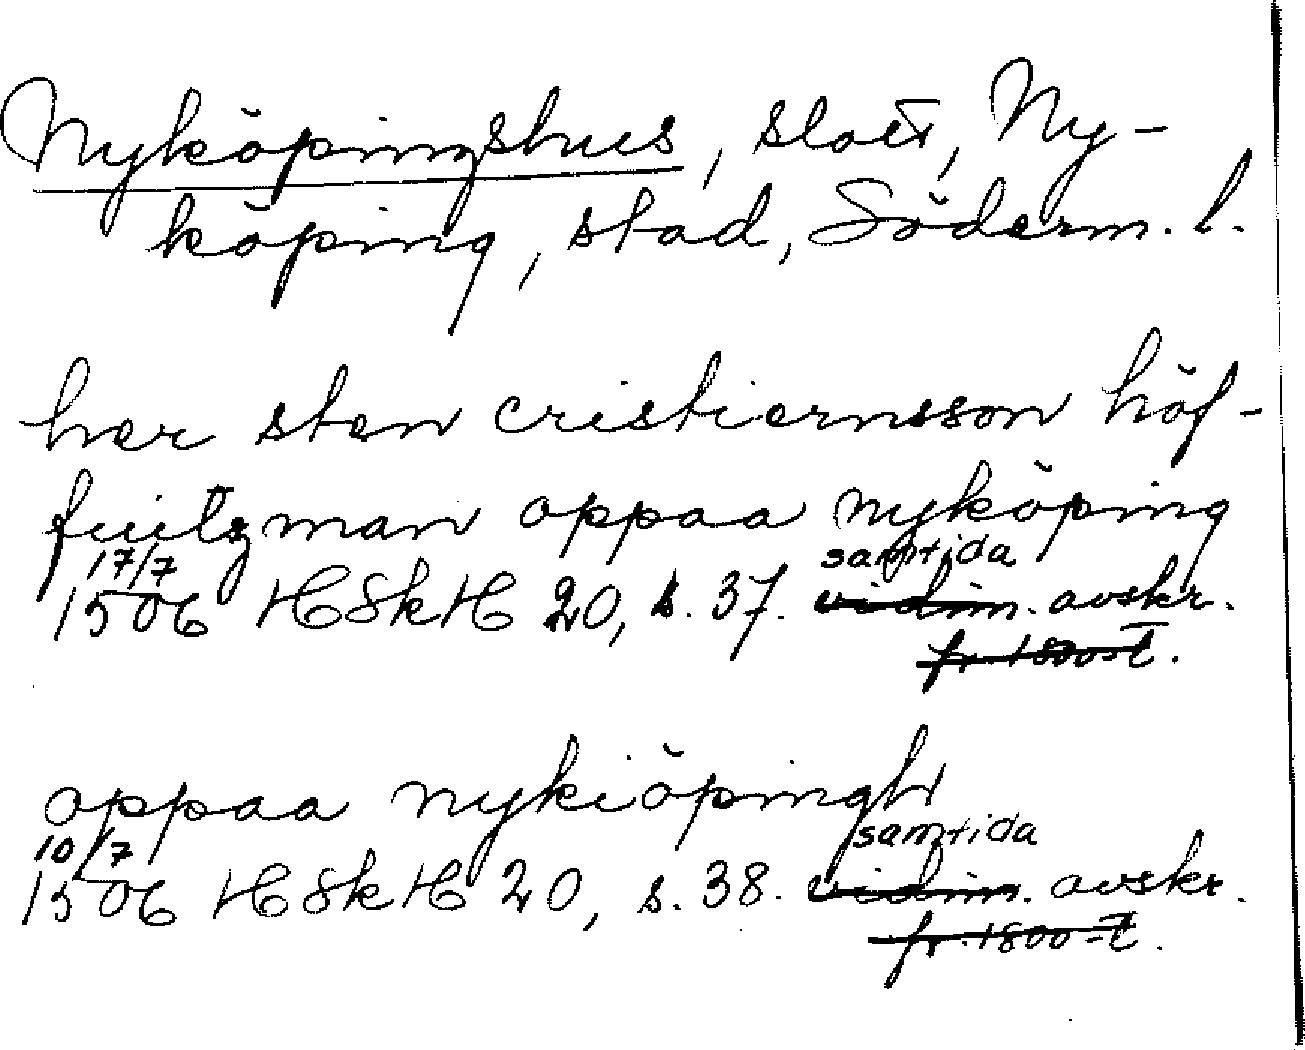 Nyköpingshus, slott, Ny-
köping, stad, Söderm. l.
her sten cristiernsson höf-
fuitzman oppaa nyköping
17/7 samtida
1506 HSkH 20, s. 37. vidim. avskr.
fr. 1800-t.
oppaa nykiöpingh
10/7 samtida
1506 HSkH 20, s. 38. vidim. avskr.
fr. 1800-t.